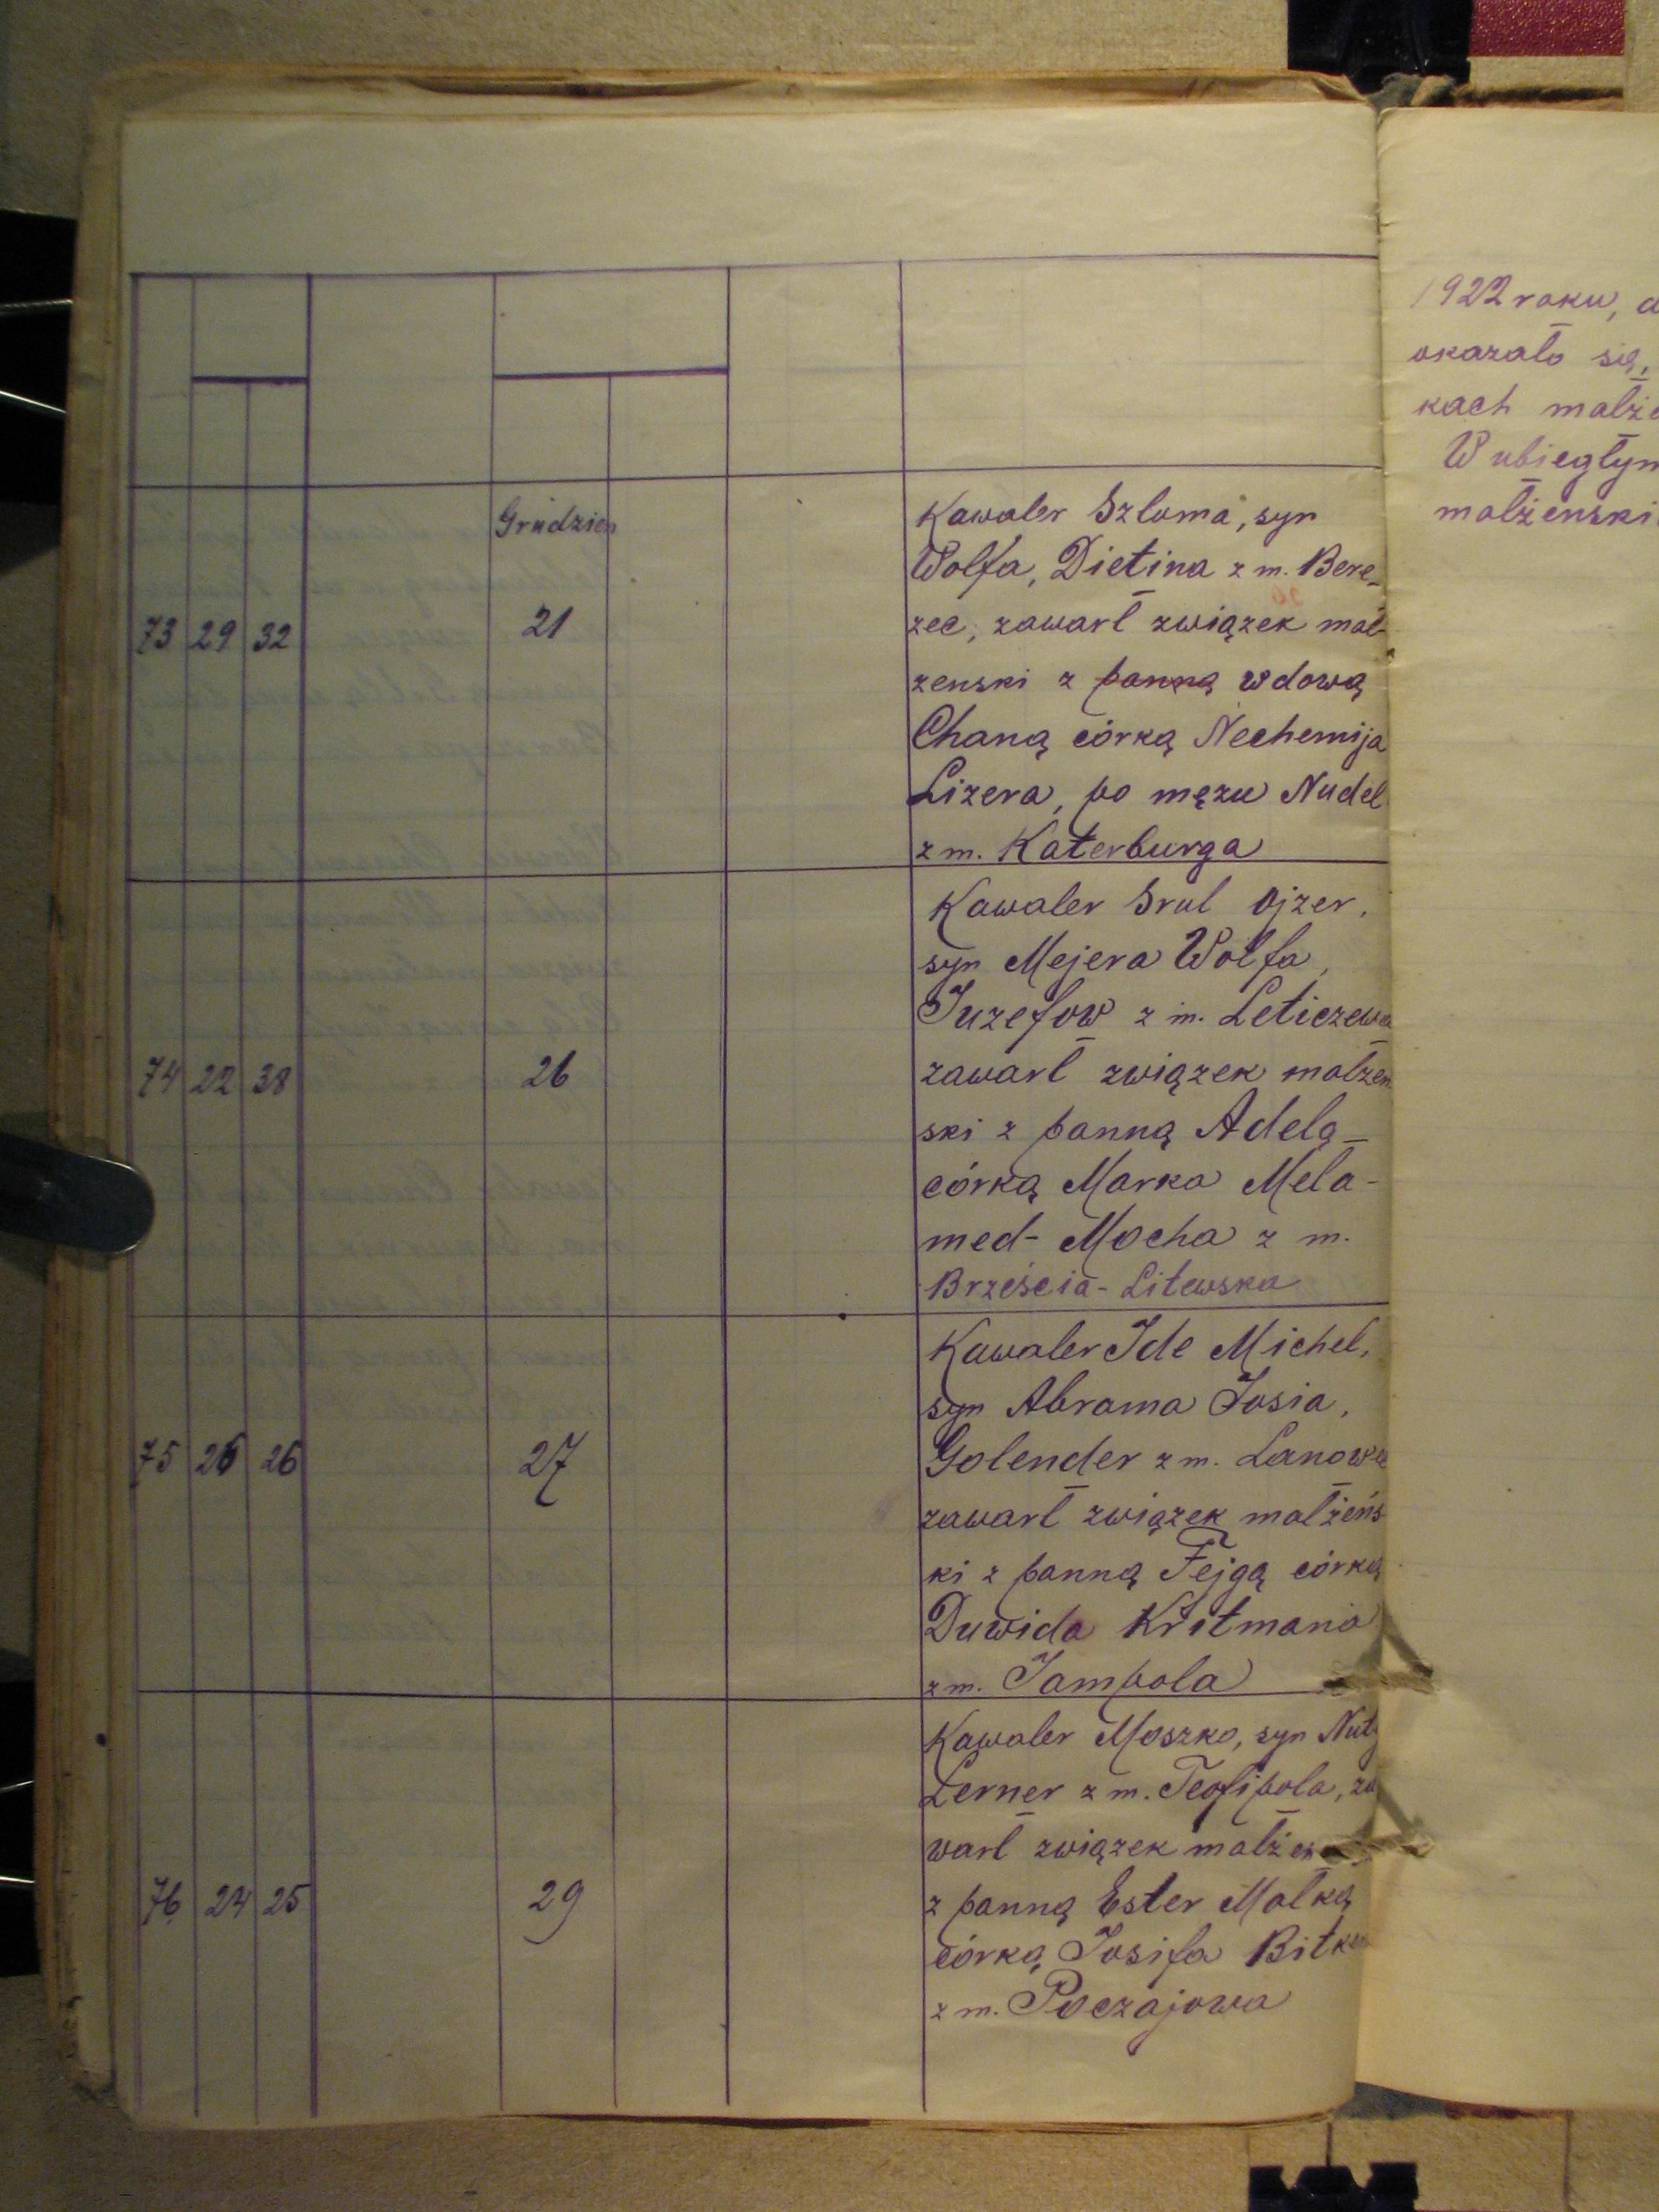 Grudzień
73 29 32 21
Kawaler Szloma, syn
Wolfa, Dietina z m. Bere-
zec, zawarł związek mał-
zenski z panną wdową
Chaną córką Nechemija
Lizera, po mężu Nudel
z m. Katerburga
74 22 38 26
Kawaler Srul Ojzer,
syn Mejera Wolfa,
Juzefow z m. Leticzewa
zawarł związek małżeń
ski z panną Adelą
córką Marka Mela-
med-Mocha z m.
Brześcia-Litewska
75 26 26 27
Kawaler Ide Michel,
syn Abrama Josia,
Golender z m. Lanowe
zawarł związek małżeńs-
ki z panną Fejgą córką
Duwida Kritmana
z m. Jampola
76 24 25 29
Kawaler Moszko, syn
Lerner z m. Teofipola, za
warł związek
z panną Ester Malką
córką Josifa
z m. Poczajowa
1922 roku,
okazało się,
kach
W ubiegłym